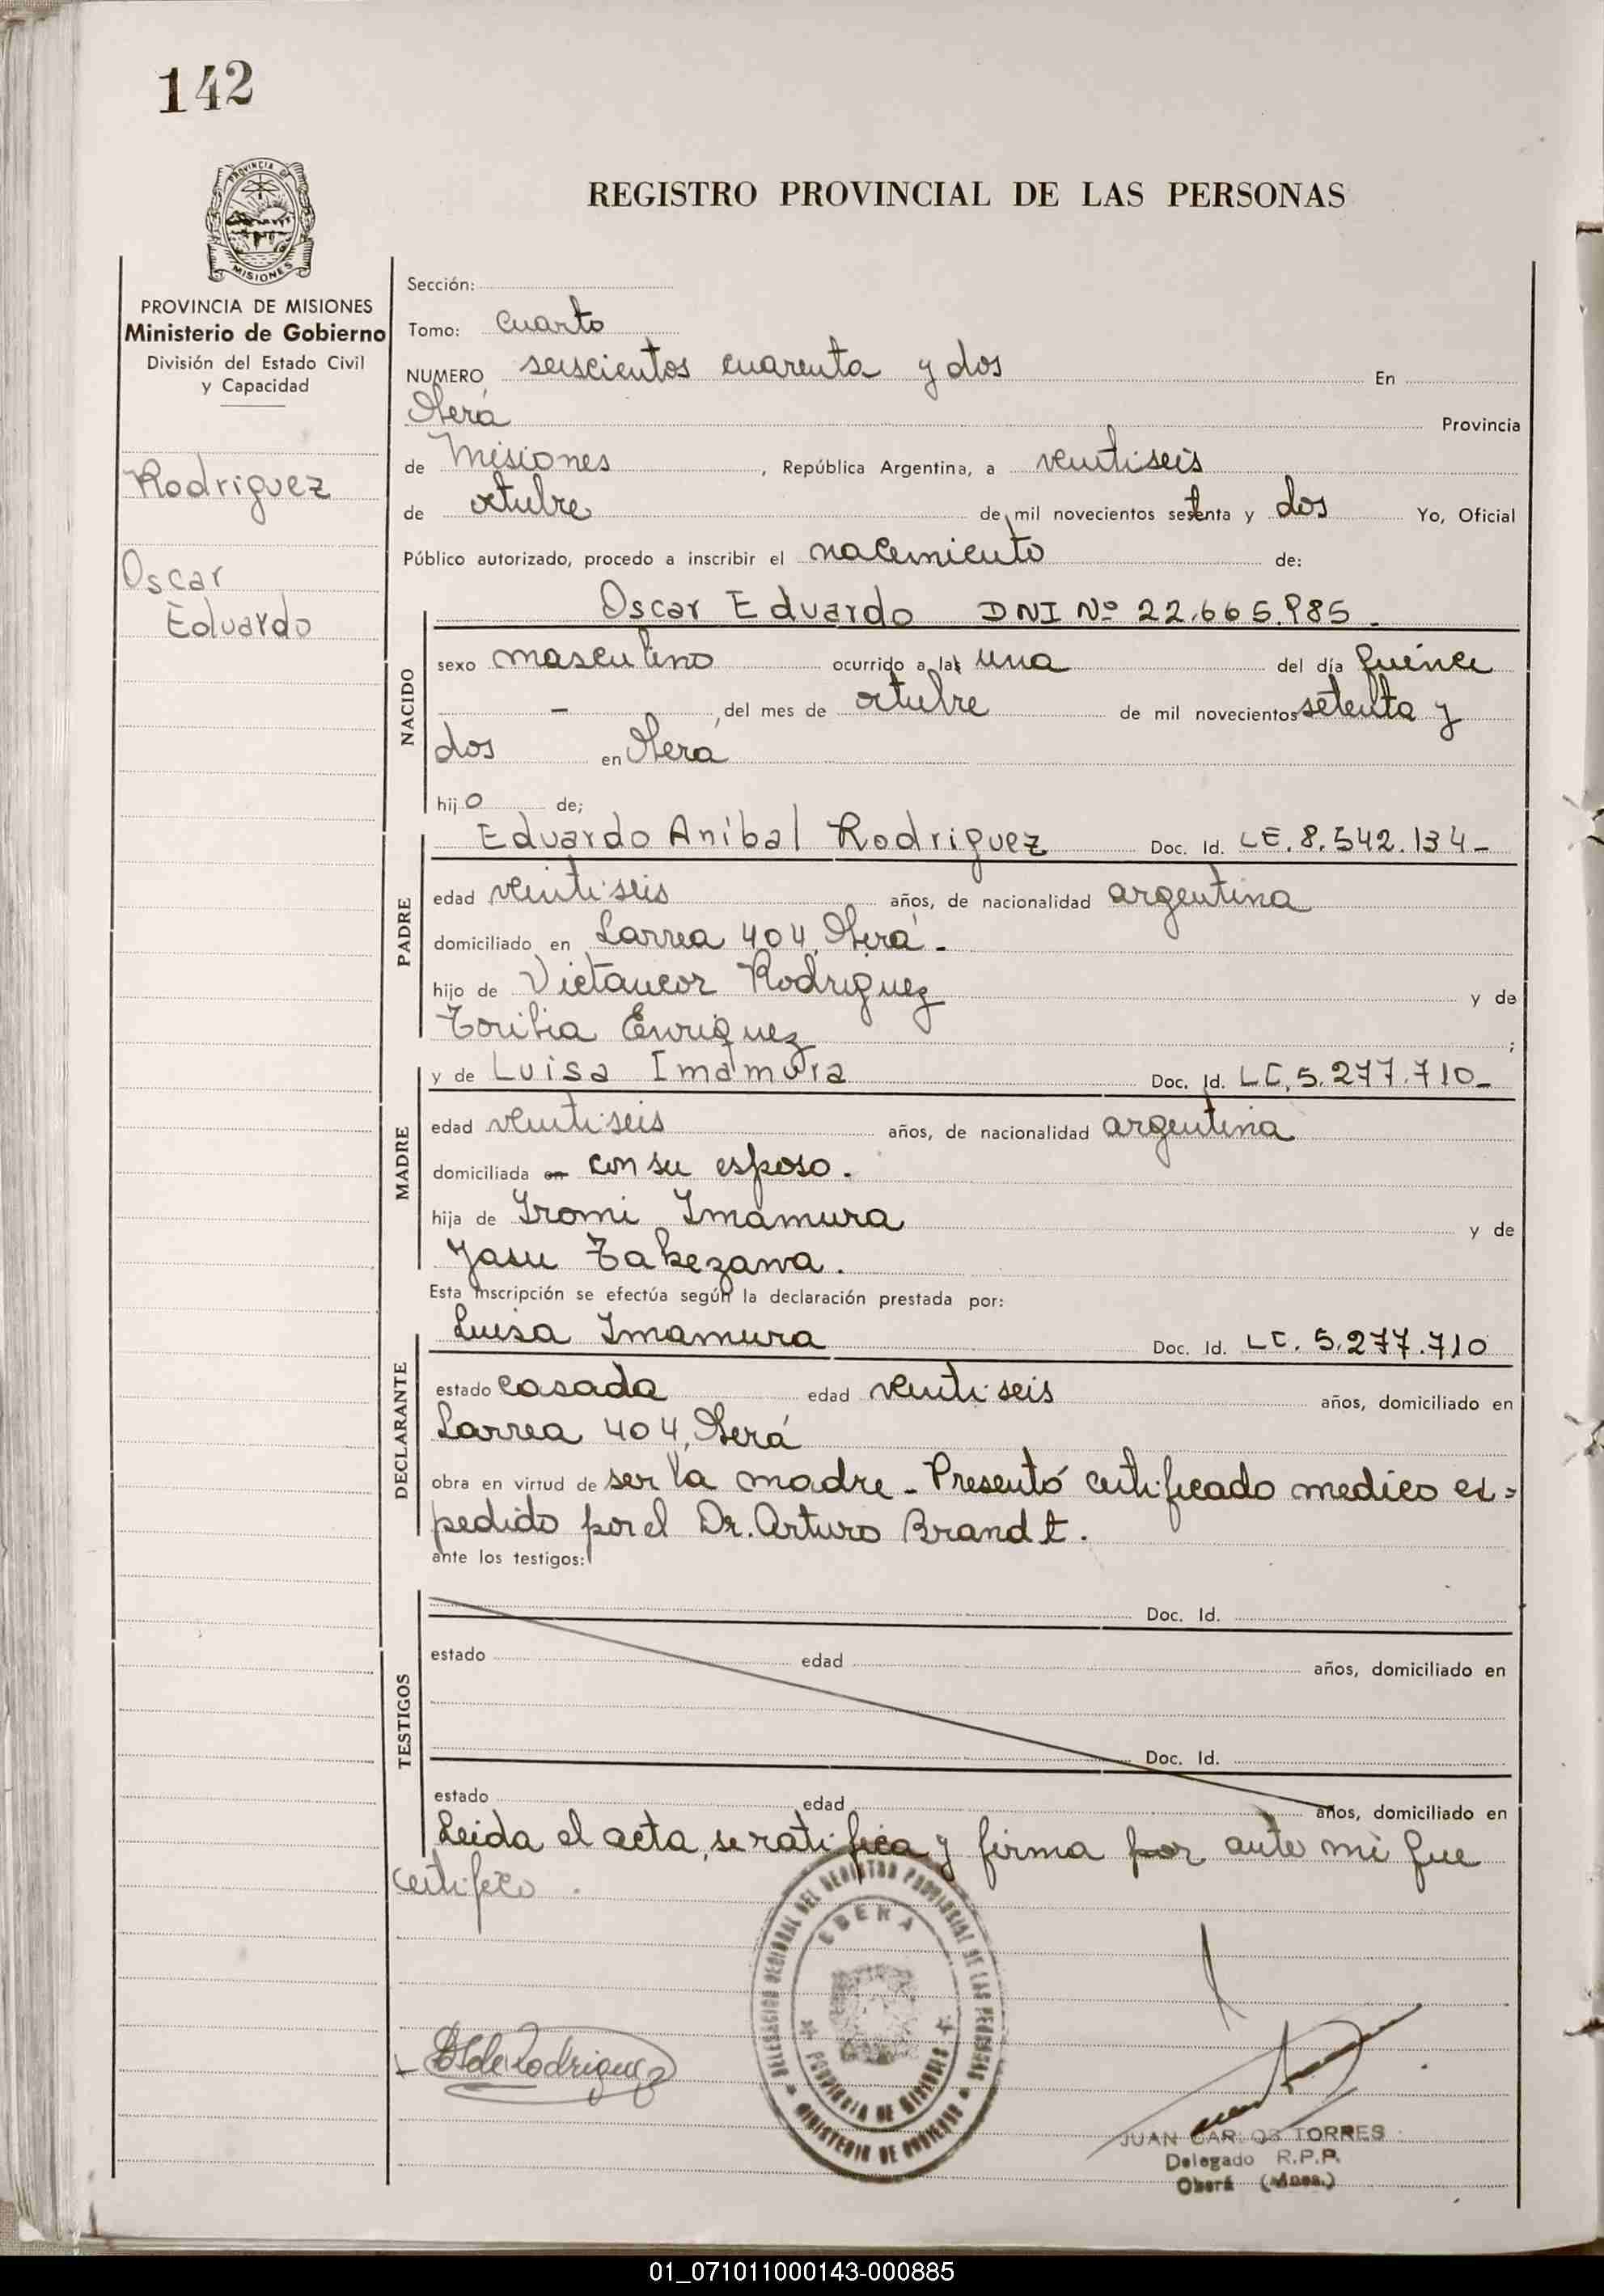 142
PROVINCIA DE
MISIONES
REGISTRO PROVINCIAL DE LAS PERSONAS
PROVINCIA DE MISIONES
Ministerio de Gobierno
División del Estado Civil
y Capacidad
Rodriguez
Oscar
Eduardo
Sección:
Tomo: cuarto
NUMERO seiscientos cuarenta y dos En
Oberá Provincia
de Misiones, República Argentina, a veintiseis
de octubre de mil novecientos setenta y dos Yo, Oficial
Público autorizado, procedo a inscribir el nacimiento de:
NACIDO
Oscar Eduardo DNI Nº 22.665.985.-
sexo masculino ocurrido a las una del día quince
- del mes de octubre de mil novecientos setenta y
dos en Oberá
hijo de;
PADRE
Eduardo Aníbal Rodriguez Doc. Id. LE. 8.542.134-
edad veintiseis años, de nacionalidad argentina
domiciliado en Larrea 404, Oberá-
hijo de Victancor Rodriguez y de
Toribia Enriquez;
MADRE
y de Luisa Imamura Doc. Id. LC. 5.277.710-
edad veintiseis años, de nacionalidad argentina
domiciliada en con su esposo.
hija de Iromi Imamura y de
Yasu Takezawa.
Esta inscripción se efectúa según la declaración prestada por:
DECLARANTE
Luisa Imamura Doc. Id. LC. 5.277.710
estado casada edad veintiseis años, domiciliado en
Larrea 404, Oberá
obra en virtud de ser la madre - Presentó certificado medico ex=
pedido por el Dr. Arturo Brandt.
ante los testigos:
TESTIGOS
Doc. Id.
estado edad años, domiciliado en
Doc. Id.
estado edad años, domiciliado en
Leida el acta, se ratifica y firma por ante mi que
certifico.
DELEGACION REGIONAL DEL REGISTRO PROVINCIAL DE LAS PERSONAS
OBERA
PROVINCIA DE MISIONES
MINISTERIO DE GOBIERNO
de Rodriguez
JUAN CARLOS TORRES
Delegado R.P.P.
Oberá (Mnes.)
01_071011000143-000885